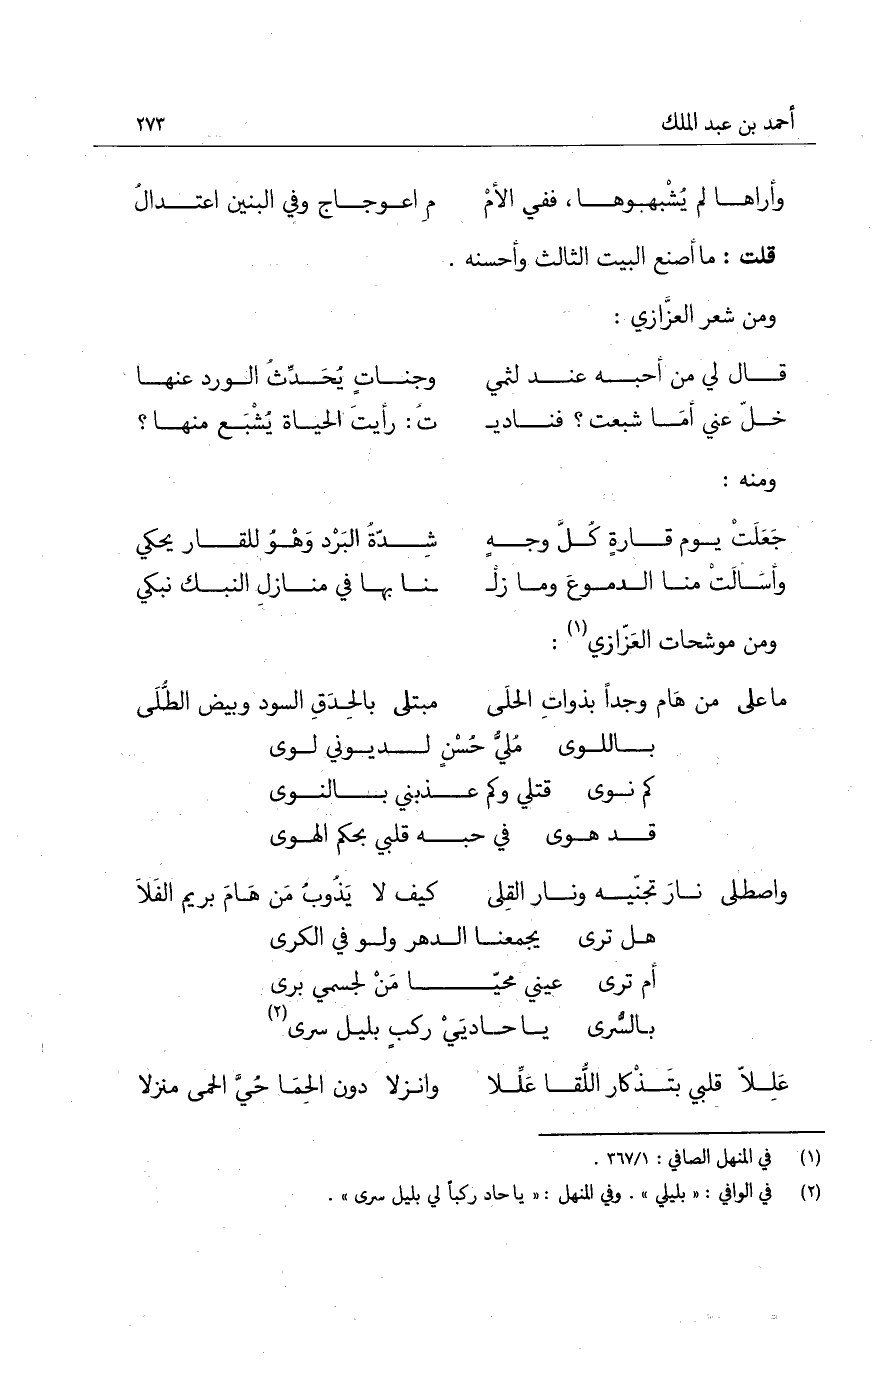 أحمد بن عبد الملك ٢٧٣
وأراهـا لم يُشْبهـوهـا ، ففي الأمْ م اعـوجـاج وفي البنين اعتـدالُ
قلت : ما أصنع البيت الثالث وأحسنه .
ومن شعر العزَّازي :
قـال لي من أحبـه عنـد لثمي وجنـاتٍ يُحَـدِّثُ الـورد عنهـا
خـلّ عني أمَـا شبعت ؟ فنـاديـ ـتُ : رأيتَ الحيـاة يُشْبَـع منهـا ؟
ومنه :
جَعَلَتْ يـوم قـارةٍ كُـلَّ وجـهٍ شـدّةُ البَرْد وَهْـوُ للقـار يحكي
وأسَـالَتْ منـا الـدمـوعَ ومـا زلْـ ـنـا بهـا في منـازلِ النبـك نبكي
ومن موشحات العَزّازي(١) :
ما على من هَام وجداً بذواتِ الحلَى مبتلى بالحِدَقِ السود وبيض الطُّلَى
بـاللـوى مُليُّ حُسْنٍ لـديـوني لـوى
كم نـوى قتلي وكم عـذبني بـالنـوى
قـد هـوى في حبـه قلبي بحكم الهـوى
واصطلى نـارَ تجنّيـه ونـار القلى كيف لا يَذُوبُ مَن هَـامَ بريم الفَلاَ
هـل ترى يجمعنـا الـدهر ولـو في الكرى
أم ترى عيني محيّـا مَنْ لجسمي برى
بـالسُّرى يـا حـاديَيْ ركبٍ بليـل سرى(٢)
عَلِـلاّ قلبي بتَـذْكار اللُّقـا عَلِّـلا وانـزلا دون الحِمَـا حُيَّ الحمى منزلا
(١) في المنهل الصافي : ٣٦٧/١ .
(٢) في الوافي : « بليلي » . وفي المنهل : « يا حاد ركباً لي بليل سرى » .